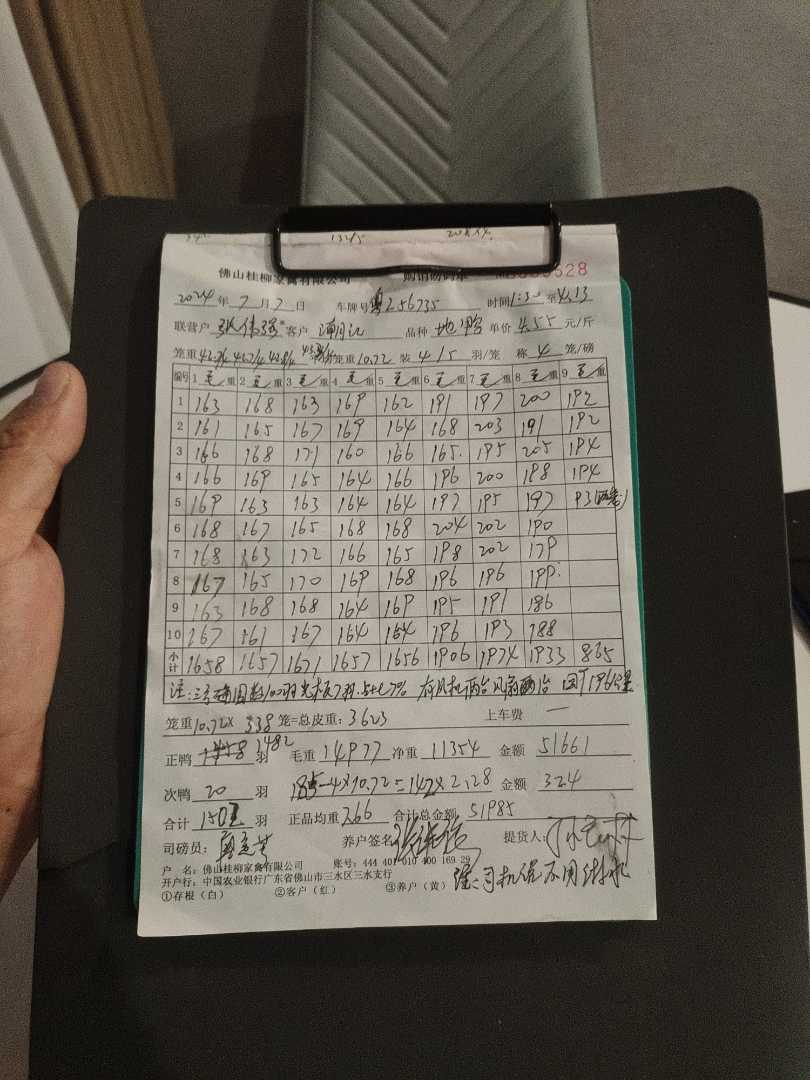 1345
佛山桂柳家禽有限公司 购销磅码单 528
2024年7月7日 车牌号粤Z56735 时间1:30至4:13
联营户 张伟强 客户 品种 地鸭 单价4.55元/斤
笼重 笼重10.72装4/5羽/笼 称4笼/磅
编号 1毛重 2毛重 3毛重 4毛重 5毛重 6毛重 7毛重 8毛重 9毛重
1 163 168 163 169 162 191 197 200 192
2 161 165 167 169 164 168 203 191 192
3 166 168 171 160 166 165 195 205 194
4 166 169 165 164 166 196 200 188 194
5 169 163 163 164 164 197 195 197 93
6 168 167 165 168 168 204 202 190
7 168 163 172 166 165 198 202 179
8 167 165 170 169 168 196 196 199
9 163 168 168 164 169 195 191 186
10 167 161 167 164 164 196 193 188
小计 1658 1657 1671 1657 1656 1906 1974 1933 865
注:
笼重10.72× 338笼=总皮重:3623 上车费 —
正鸭 1482羽 毛重14977净重11354金额51661
次鸭20羽 185-4×10.72=142×2.28金额324
合计1502羽 正品均重7.66合计总金额51985
司磅员: 养户签名 张伟强 提货人:
户 名:佛山桂柳家禽有限公司 账号:444 401 010 400 169 29
开户行:中国农业银行广东省佛山市三水区三水支行
①存根(白) ②客户(红) ③养户(黄)